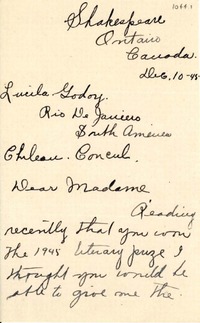 1064.1
Shakespeare
Ontario
Canada.
Dec. 10-45
Lucila Godoy.
Rio De Janiero
South America
Chilean. Concul.
Dear Madame
Reading
recently that you won
the 1945 literary prize I
thought you would be
able to give me the